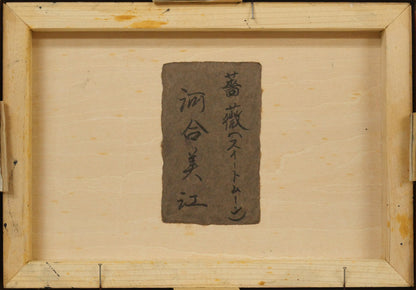 薔薇(スイートムーン)
河合美江